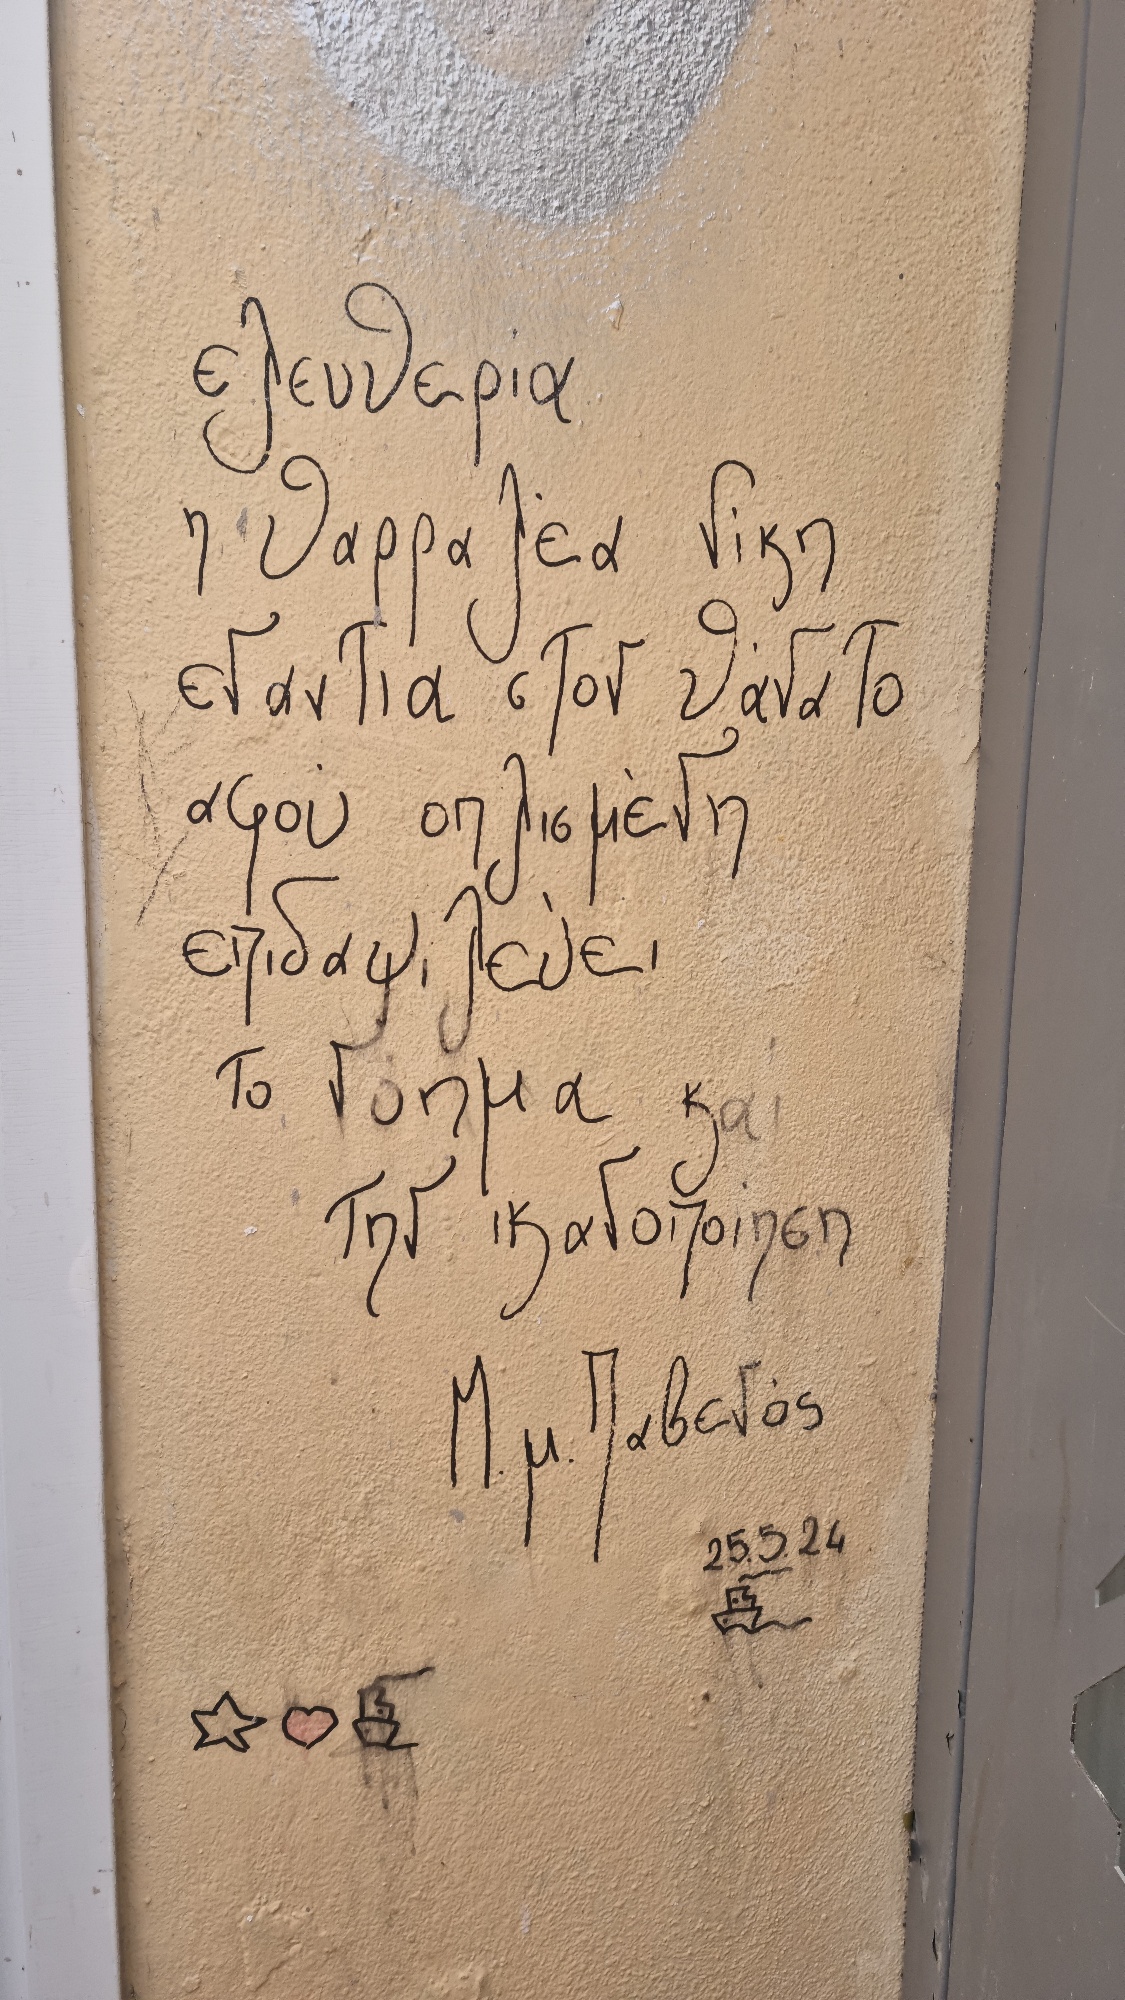 ελευθερία
η θαρραλέα νίκη
εναντια στον θάνατο
αφού οπλισμένη
επιδαψιλεύει
το νόημα και
την ικανοποίηση
Μ.μ. Παβενός
25.5.24